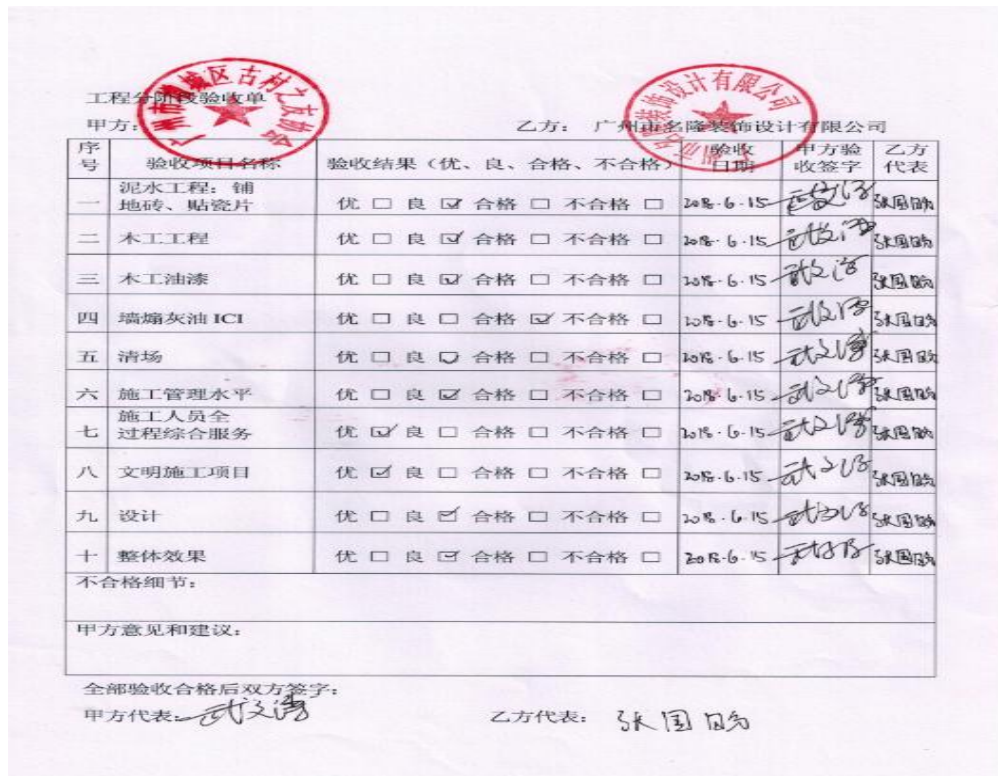 工程分阶段验收单
甲方：
乙方： 广州市名隆装饰设计有限公司
广州市 城区古村之友协会
名隆装饰设计有限公司
序号 验收项目名称 验收结果（优、良、合格、不合格） 验收日期 甲方验收签字 乙方代表
一 泥水工程：铺地砖、贴瓷片 优 □ 良 ☑ 合格 □ 不合格 □ 2018.6.15 张国
二 木工工程 优 □ 良 ☑ 合格 □ 不合格 □ 2018.6.15 张国
三 木工油漆 优 □ 良 ☑ 合格 □ 不合格 □ 2018.6.15 张国
四 墙煽灰油 ICI 优 □ 良 □ 合格 ☑ 不合格 □ 2018.6.15 张国
五 清场 优 □ 良 ☑ 合格 □ 不合格 □ 2018.6.15 张国
六 施工管理水平 优 □ 良 ☑ 合格 □ 不合格 □ 2018.6.15 张国
七 施工人员全过程综合服务 优 ☑ 良 □ 合格 □ 不合格 □ 2018.6.15 张国
八 文明施工项目 优 ☑ 良 □ 合格 □ 不合格 □ 2018.6.15 张国
九 设计 优 □ 良 ☑ 合格 □ 不合格 □ 2018.6.15 张国
十 整体效果 优 □ 良 ☑ 合格 □ 不合格 □ 2018.6.15 张国
不合格细节：
甲方意见和建议：
全部验收合格后双方签字：
甲方代表： 武文
乙方代表： 张国